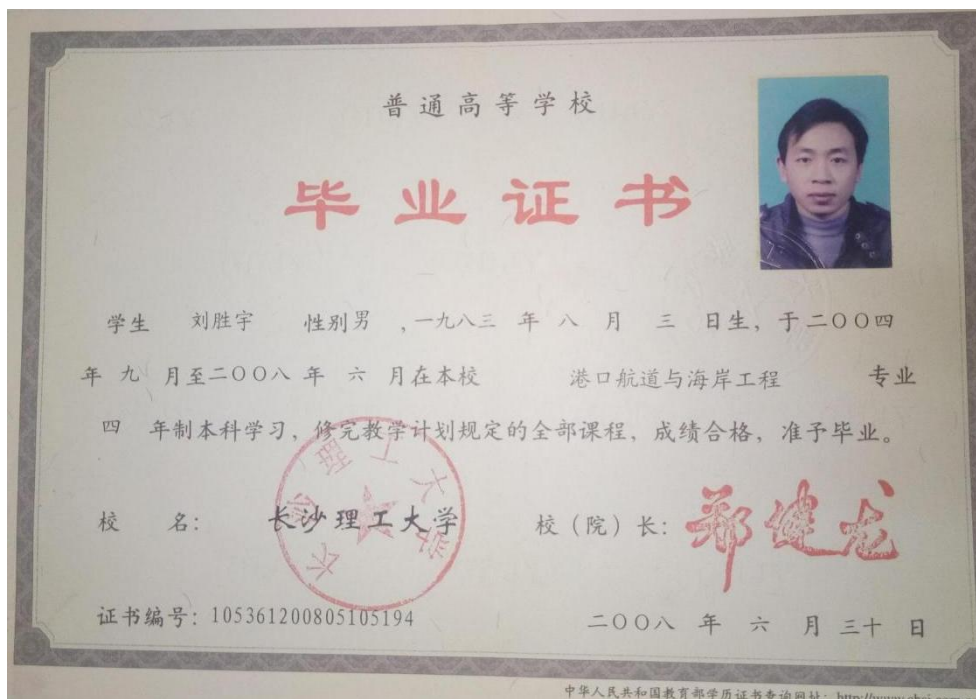 普通高等学校
毕业证书
学生 刘胜宇 性别 男 ,一九八三 年 八 月 三 日生，于二〇〇四
年 九 月至二〇〇八 年 六 月在本校 港口航道与海岸工程 专业
四 年制本科学习，修完教学计划规定的全部课程，成绩合格，准予毕业。
校 名： 长沙理工大学 校（院）长： 郑健龙
长沙理工大学
证书编号：105361200805105194 二〇〇八 年 六 月 三十 日
中华人民共和国教育部学历证书查询网址：http://www.chsi.com